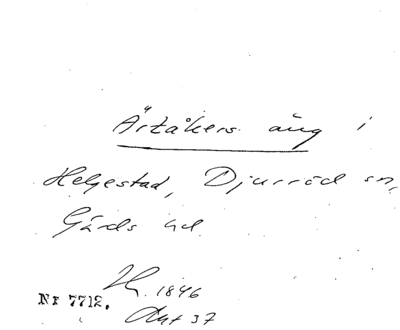 Ärtåkers äng i
Helgestad, Djurröd sn,
Gärds hd
1846
Nr 7712.
Akt 37